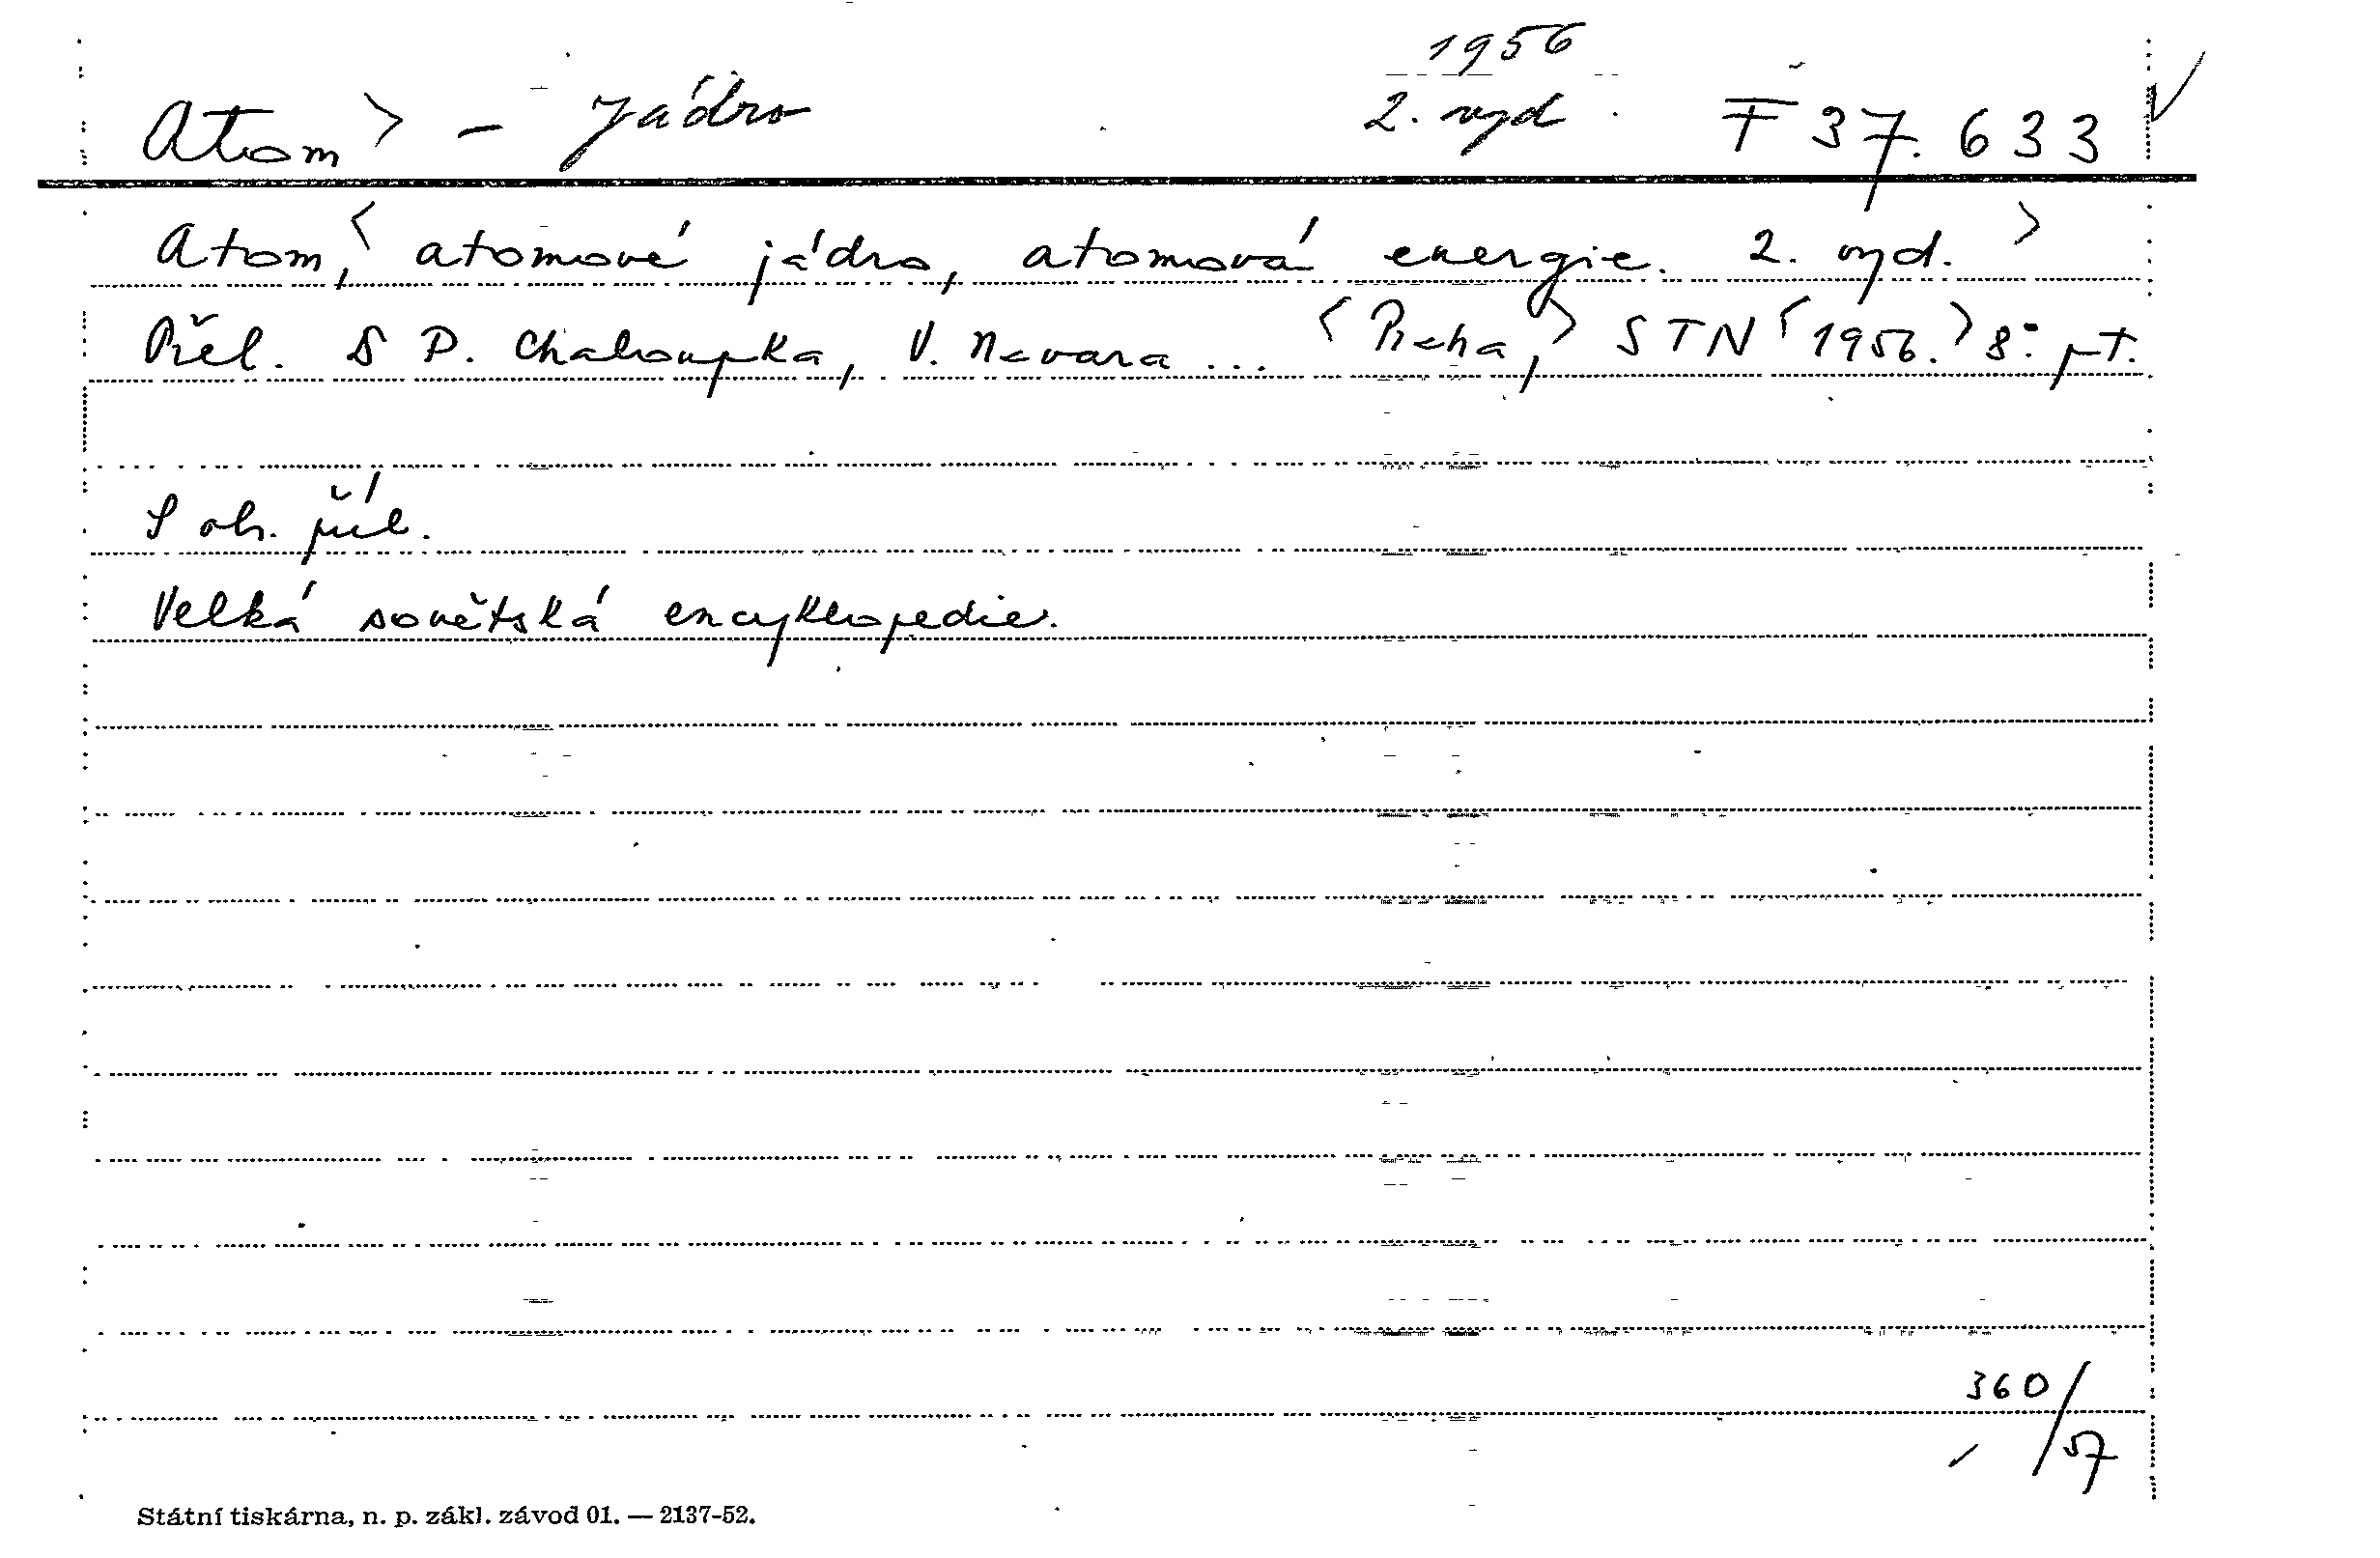 1956
Atom > - Jádro 2. vyd. F 37.633
Atom, < atomové jádro, atomová energie. 2. vyd. >
Přel. D P. Chaloupka, V. Navara ... < Praha, > STN < 1956. > 8° pT.
S ob. příl.
Velká sovětská encyklopedie.
360/57
Státní tiskárna, n. p. zákl. závod 01. — 2137-52.